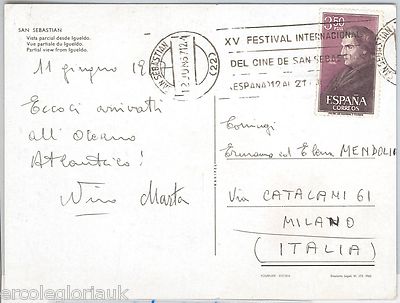 SAN SEBASTIAN
Vista parcial desde Igueldo.
Vue partiale du Igueldo.
Partial view from Igueldo.
11 giugno 19
Eccoci arrivati
all' Oceano
Atlantico!
Nino Marta
SAN SEBASTIAN
(22)
XV FESTIVAL INTERNACIONAL
DEL CINE DE SAN SEBAS
ESPAÑA
3,50
ESPAÑA
CORREOS
Coniugi
Ermanno ed Elena MENDOLIA
Via CATALANI 61
MILANO
(ITALIA)
ercolegloriauk
ercolegloriauk